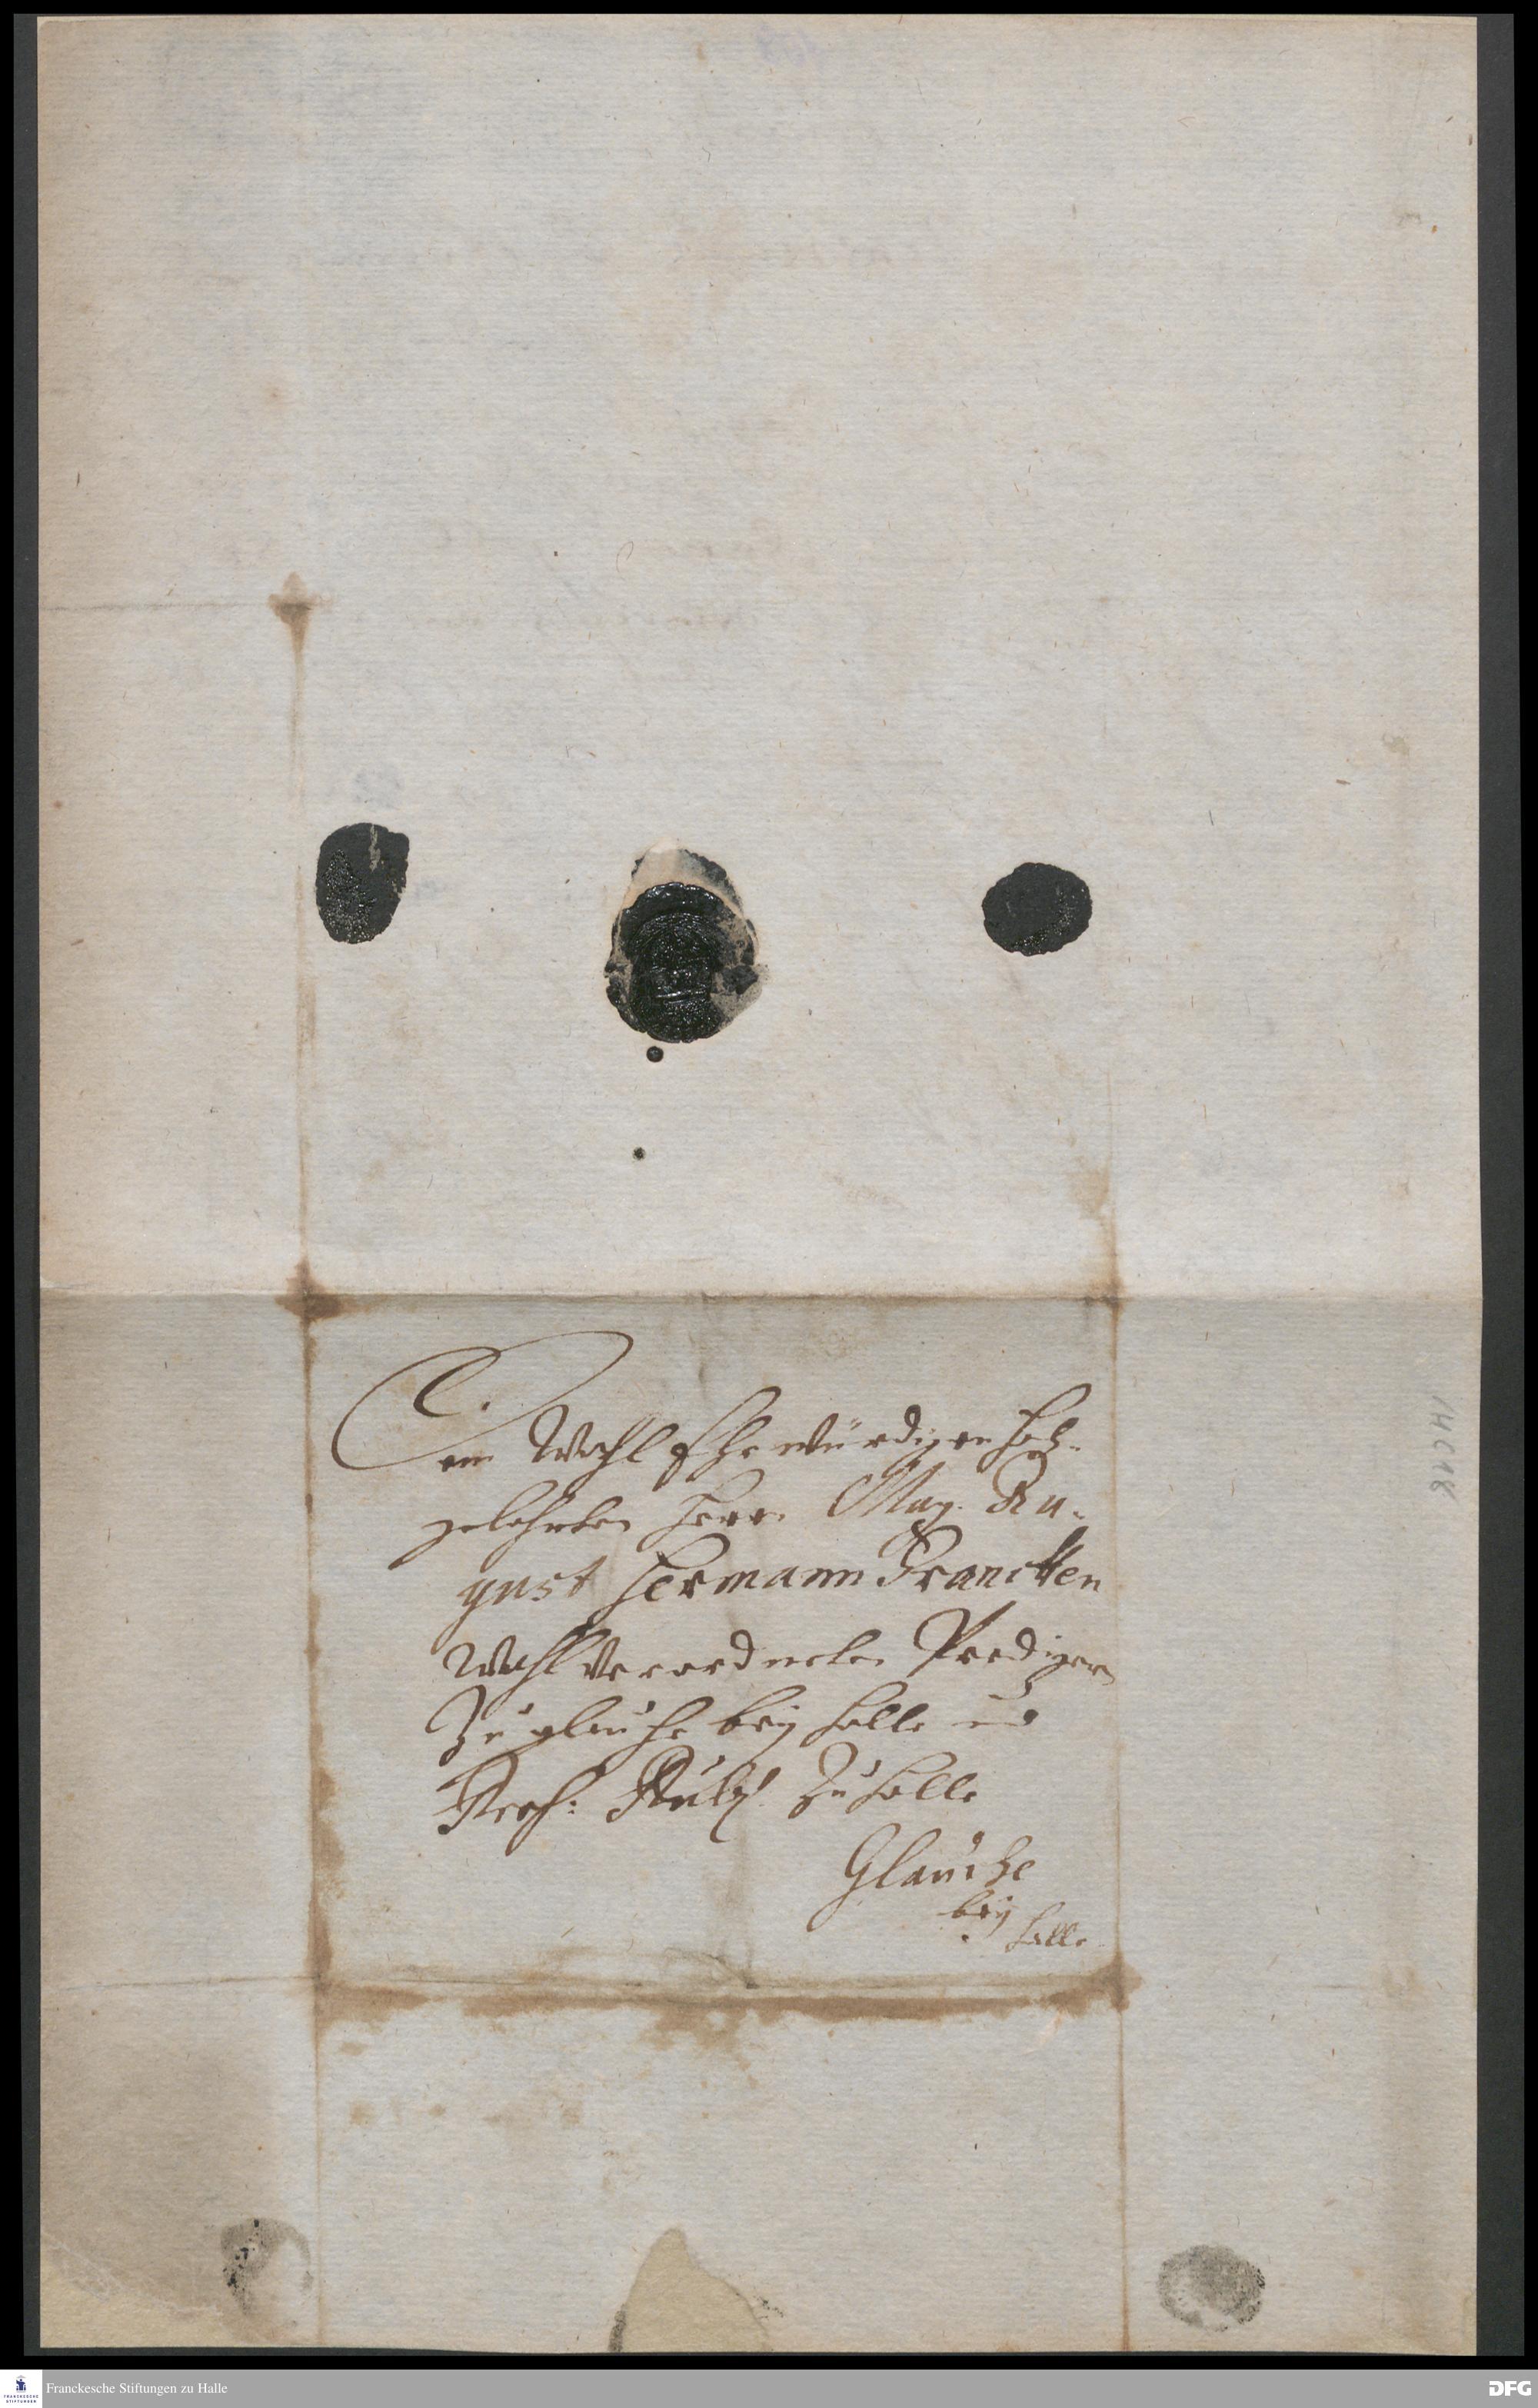 Dem Wohl Ehrwürdigen Hoch-
gelahrten Herrn Mag. Au-
gust Hermann Francken
Wohl Verordneten Predigern
Zu glauche bey Halle und
Prof: Publ. Zu Halle
Glauche
bey
Halle
14 C 18
Franckesche Stiftungen zu Halle
FRANCKESCHE
STIFTUNGEN
DFG